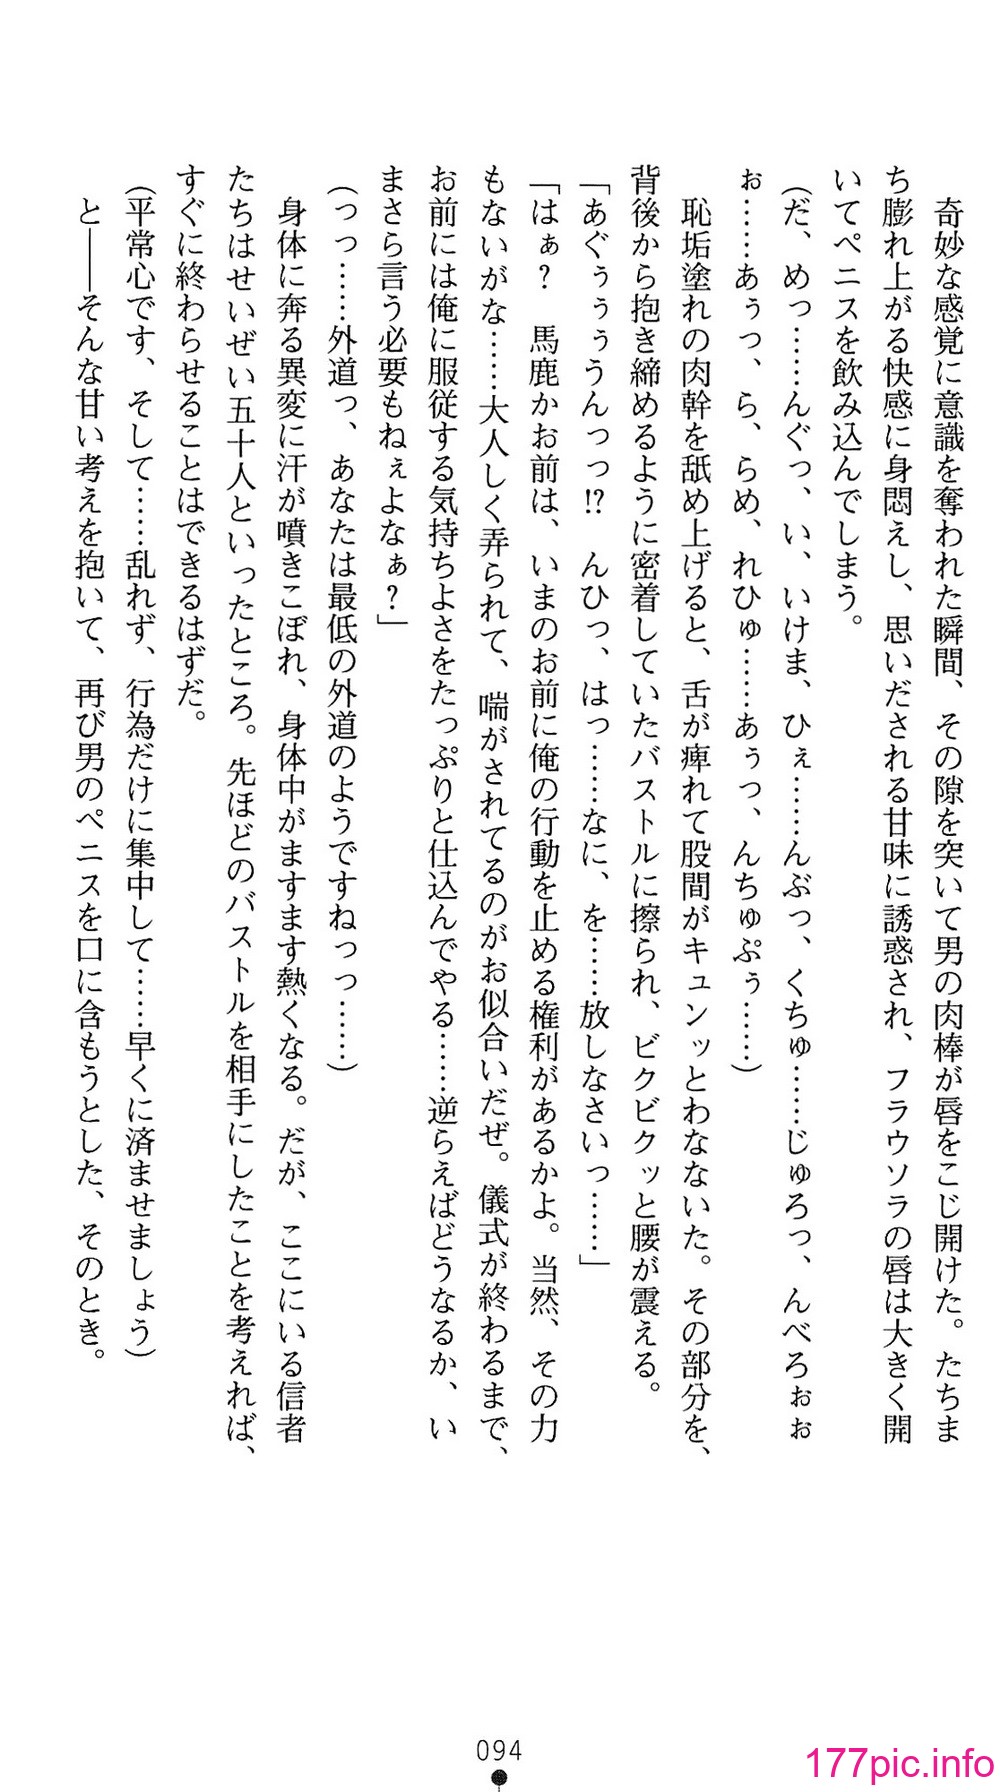 奇妙な感覚に意識を奪われた瞬間、その隙を突いて男の肉棒が唇をこじ開けた。たちま
ち膨れ上がる快感に身悶えし、思いだされる甘味に誘惑され、フラウソラの唇は大きく開
いてペニスを飲み込んでしまう。
（だ、めっ……んぐっ、い、いけま、ひぇ……んぶっ、くちゅ……じゅろっ、んべろぉぉ
ぉ……あぅっ、ら、らめ、れひゅ……あぅっ、んちゅぷぅ……）
恥垢塗れの肉幹を舐め上げると、舌が痺れて股間がキュンッとわなないた。その部分を、
背後から抱き締めるように密着していたバストルに擦られ、ビクビクッと腰が震える。
「あぐぅぅぅうんっっ!?　んひっ、はっ……なに、を……放しなさいっ……」
「はぁ？　馬鹿かお前は、いまのお前に俺の行動を止める権利があるかよ。当然、その力
もないがな……大人しく弄られて、喘がされてるのがお似合いだぜ。儀式が終わるまで、
お前には俺に服従する気持ちよさをたっぷりと仕込んでやる……逆らえばどうなるか、い
まさら言う必要もねぇよなぁ？」
（っっ……外道っ、あなたは最低の外道のようですねっっ……）
身体に奔る異変に汗が噴きこぼれ、身体中がますます熱くなる。だが、ここにいる信者
たちはせいぜい五十人といったところ。先ほどのバストルを相手にしたことを考えれば、
すぐに終わらせることはできるはずだ。
（平常心です、そして……乱れず、行為だけに集中して……早くに済ませましょう）
と――そんな甘い考えを抱いて、再び男のペニスを口に含もうとした、そのとき。
094
177pic.info